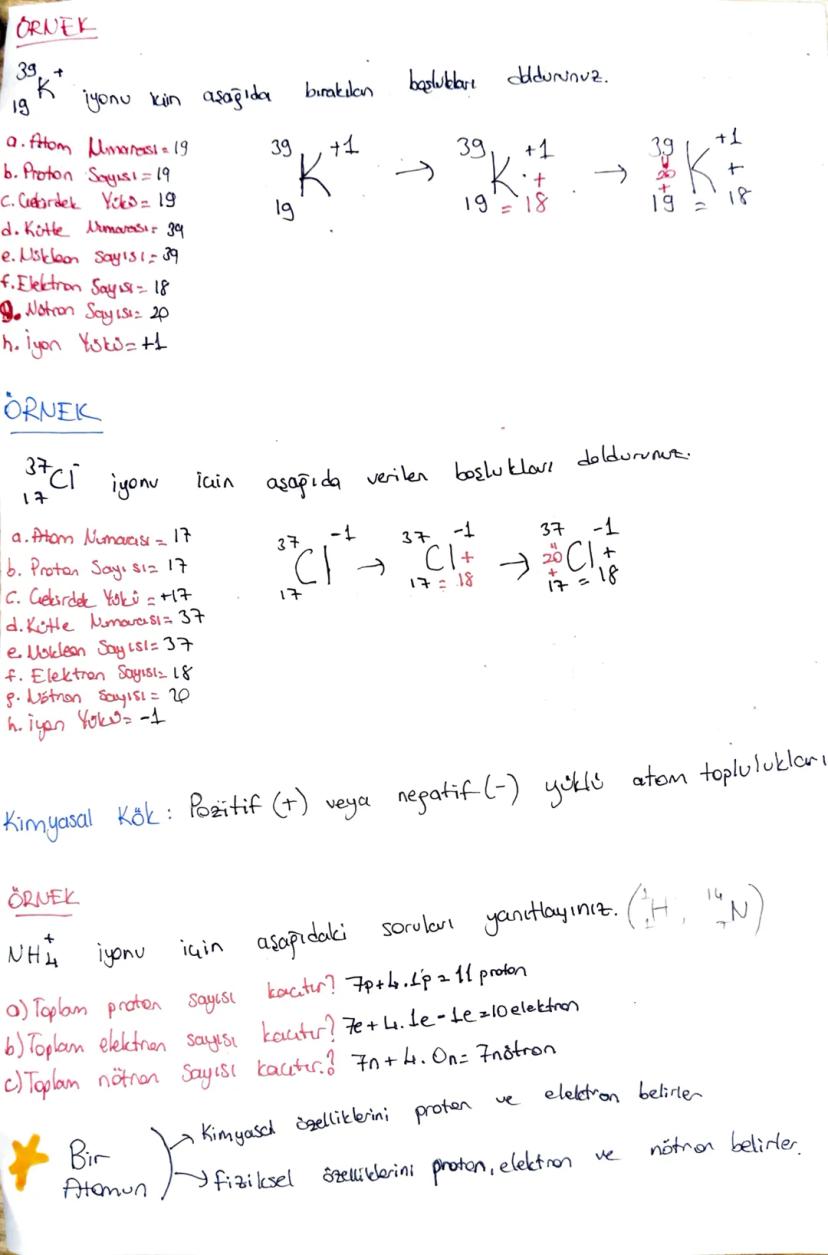 ÖRNEK
³⁹₁₉K⁺ iyonu için aşağıda bırakılan boşlukları doldurunuz.
a. Atom Numarası = 19
b. Proton Sayısı = 19
c. Çekirdek Yükü = 19
d. Kütle Numarası = 39
e. Nükleon Sayısı = 39
f. Elektron Sayısı = 18
g. Nötron Sayısı = 20
h. İyon Yükü = +1
39 K +1 19 → 39 K +1 + 19 = 18 → 39 K +1 20 + + 19 = 18
ÖRNEK
³⁷₁₇Cl⁻ iyonu için aşağıda verilen boşlukları doldurunuz.
a. Atom Numarası = 17
b. Proton Sayısı = 17
c. Çekirdek Yükü = +17
d. Kütle Numarası = 37
e. Nükleon Sayısı = 37
f. Elektron Sayısı = 18
g. Nötron Sayısı = 20
h. İyon Yükü = -1
37 Cl -1 17 → 37 Cl -1 + 17 = 18 → 37 Cl -1 20 + + 17 = 18
Kimyasal Kök: Pozitif (+) veya negatif (-) yüklü atom toplulukları
ÖRNEK
NH₄⁺ iyonu için aşağıdaki soruları yanıtlayınız. (¹₁H, ¹⁴₇N)
a) Toplam proton sayısı kaçtır? 7p + 4.1p = 11 proton
b) Toplam elektron sayısı kaçtır? 7e + 4.1e - 1e = 10 elektron
c) Toplam nötron sayısı kaçtır? 7n + 4.0n = 7 nötron
Bir Atomun
→ Kimyasal özelliklerini proton ve elektron belirler
→ fiziksel özelliklerini proton, elektron ve nötron belirler.